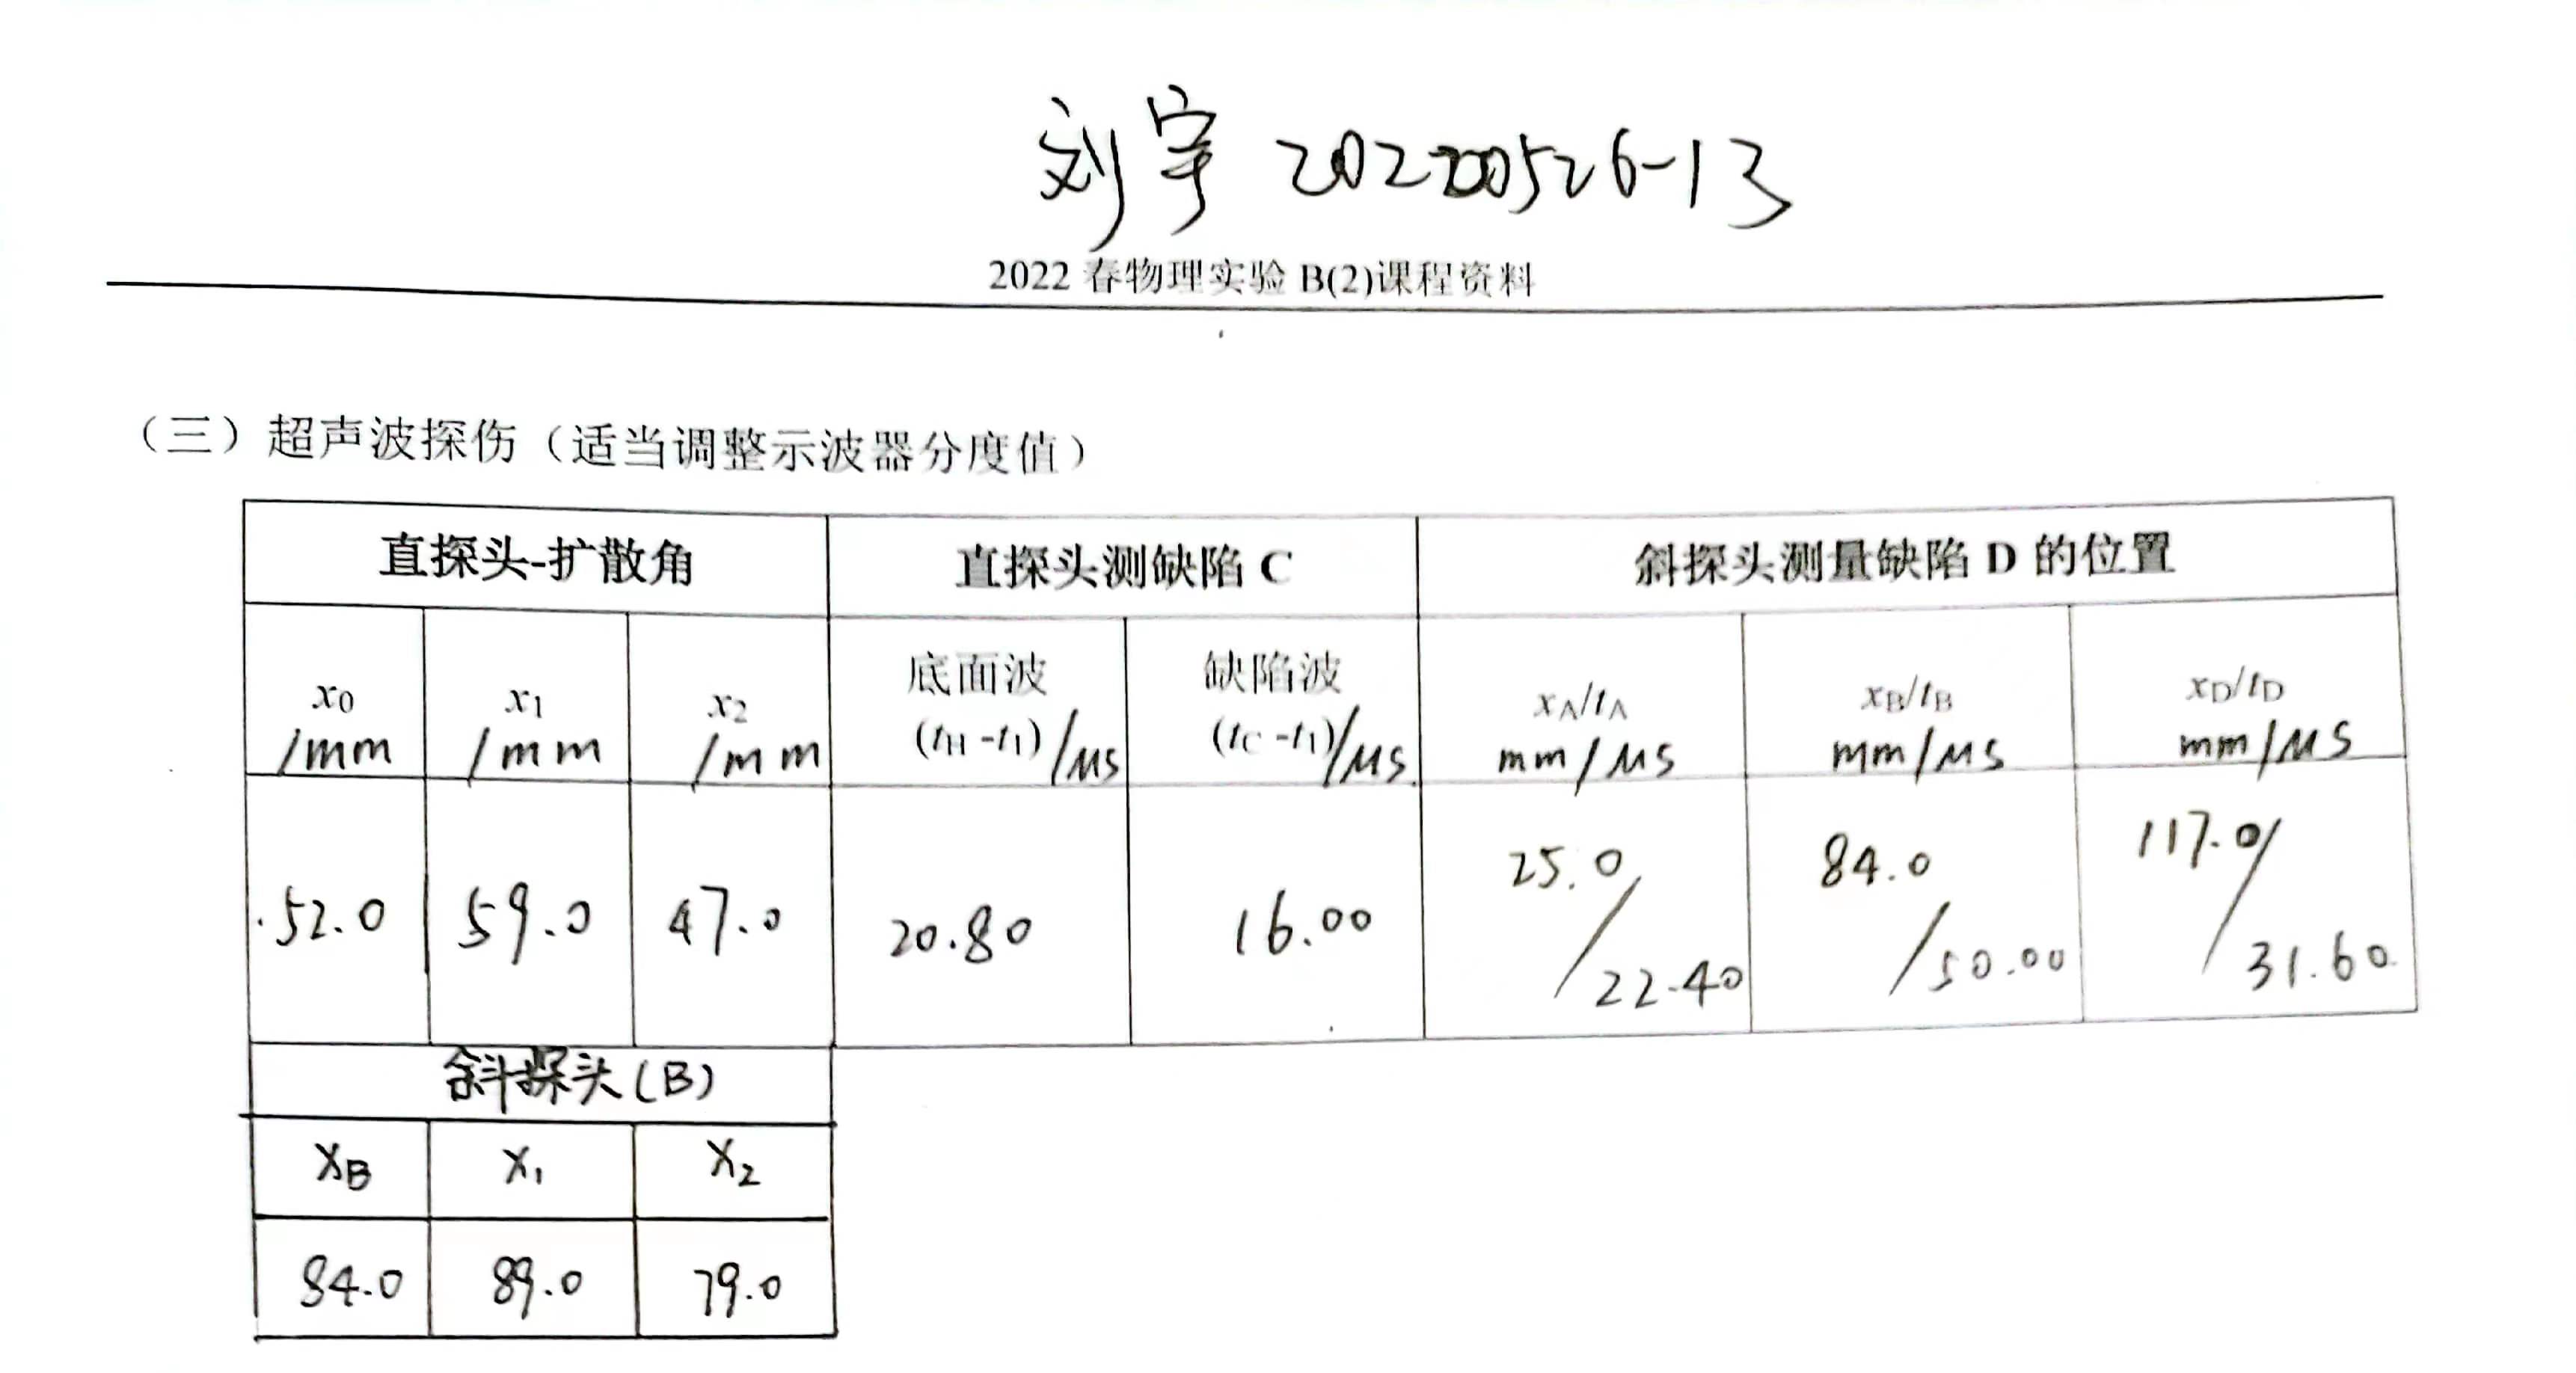 刘宇 20220526-13
2022 春物理实验 B(2)课程资料
（三）超声波探伤（适当调整示波器分度值）
直探头-扩散角 直探头测缺陷 C 斜探头测量缺陷 D 的位置
x0 /mm x1 /mm x2 /mm 底面波 (tH -t1) /μs 缺陷波 (tC -t1) /μs xA/tA mm/μs xB/tB mm/μs xD/tD mm/μs
52.0 59.0 47.0 20.80 16.00 25.0/22.40 84.0/50.00 117.0/31.60
斜探头(B)
XB X1 X2
84.0 89.0 79.0